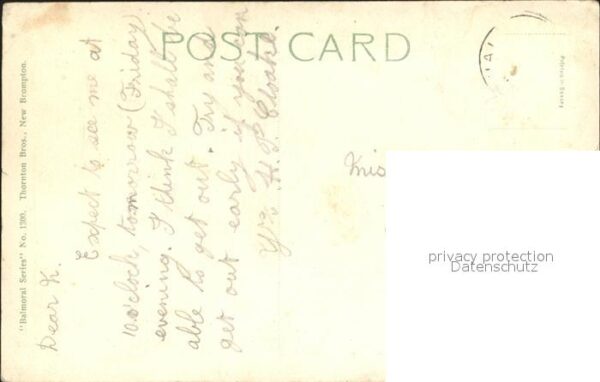 POST CARD
"Balmoral Series" No. 1300. Thornton Bros., New Brompton.
Dear K.
Expect to see me at
10 o'clock, tomorrow (Friday)
evening. I think I shall be
able to get out. Try and
get out early if you can
Yrs H. P.
Printed in Saxony
Miss
privacy protection
Datenschutz